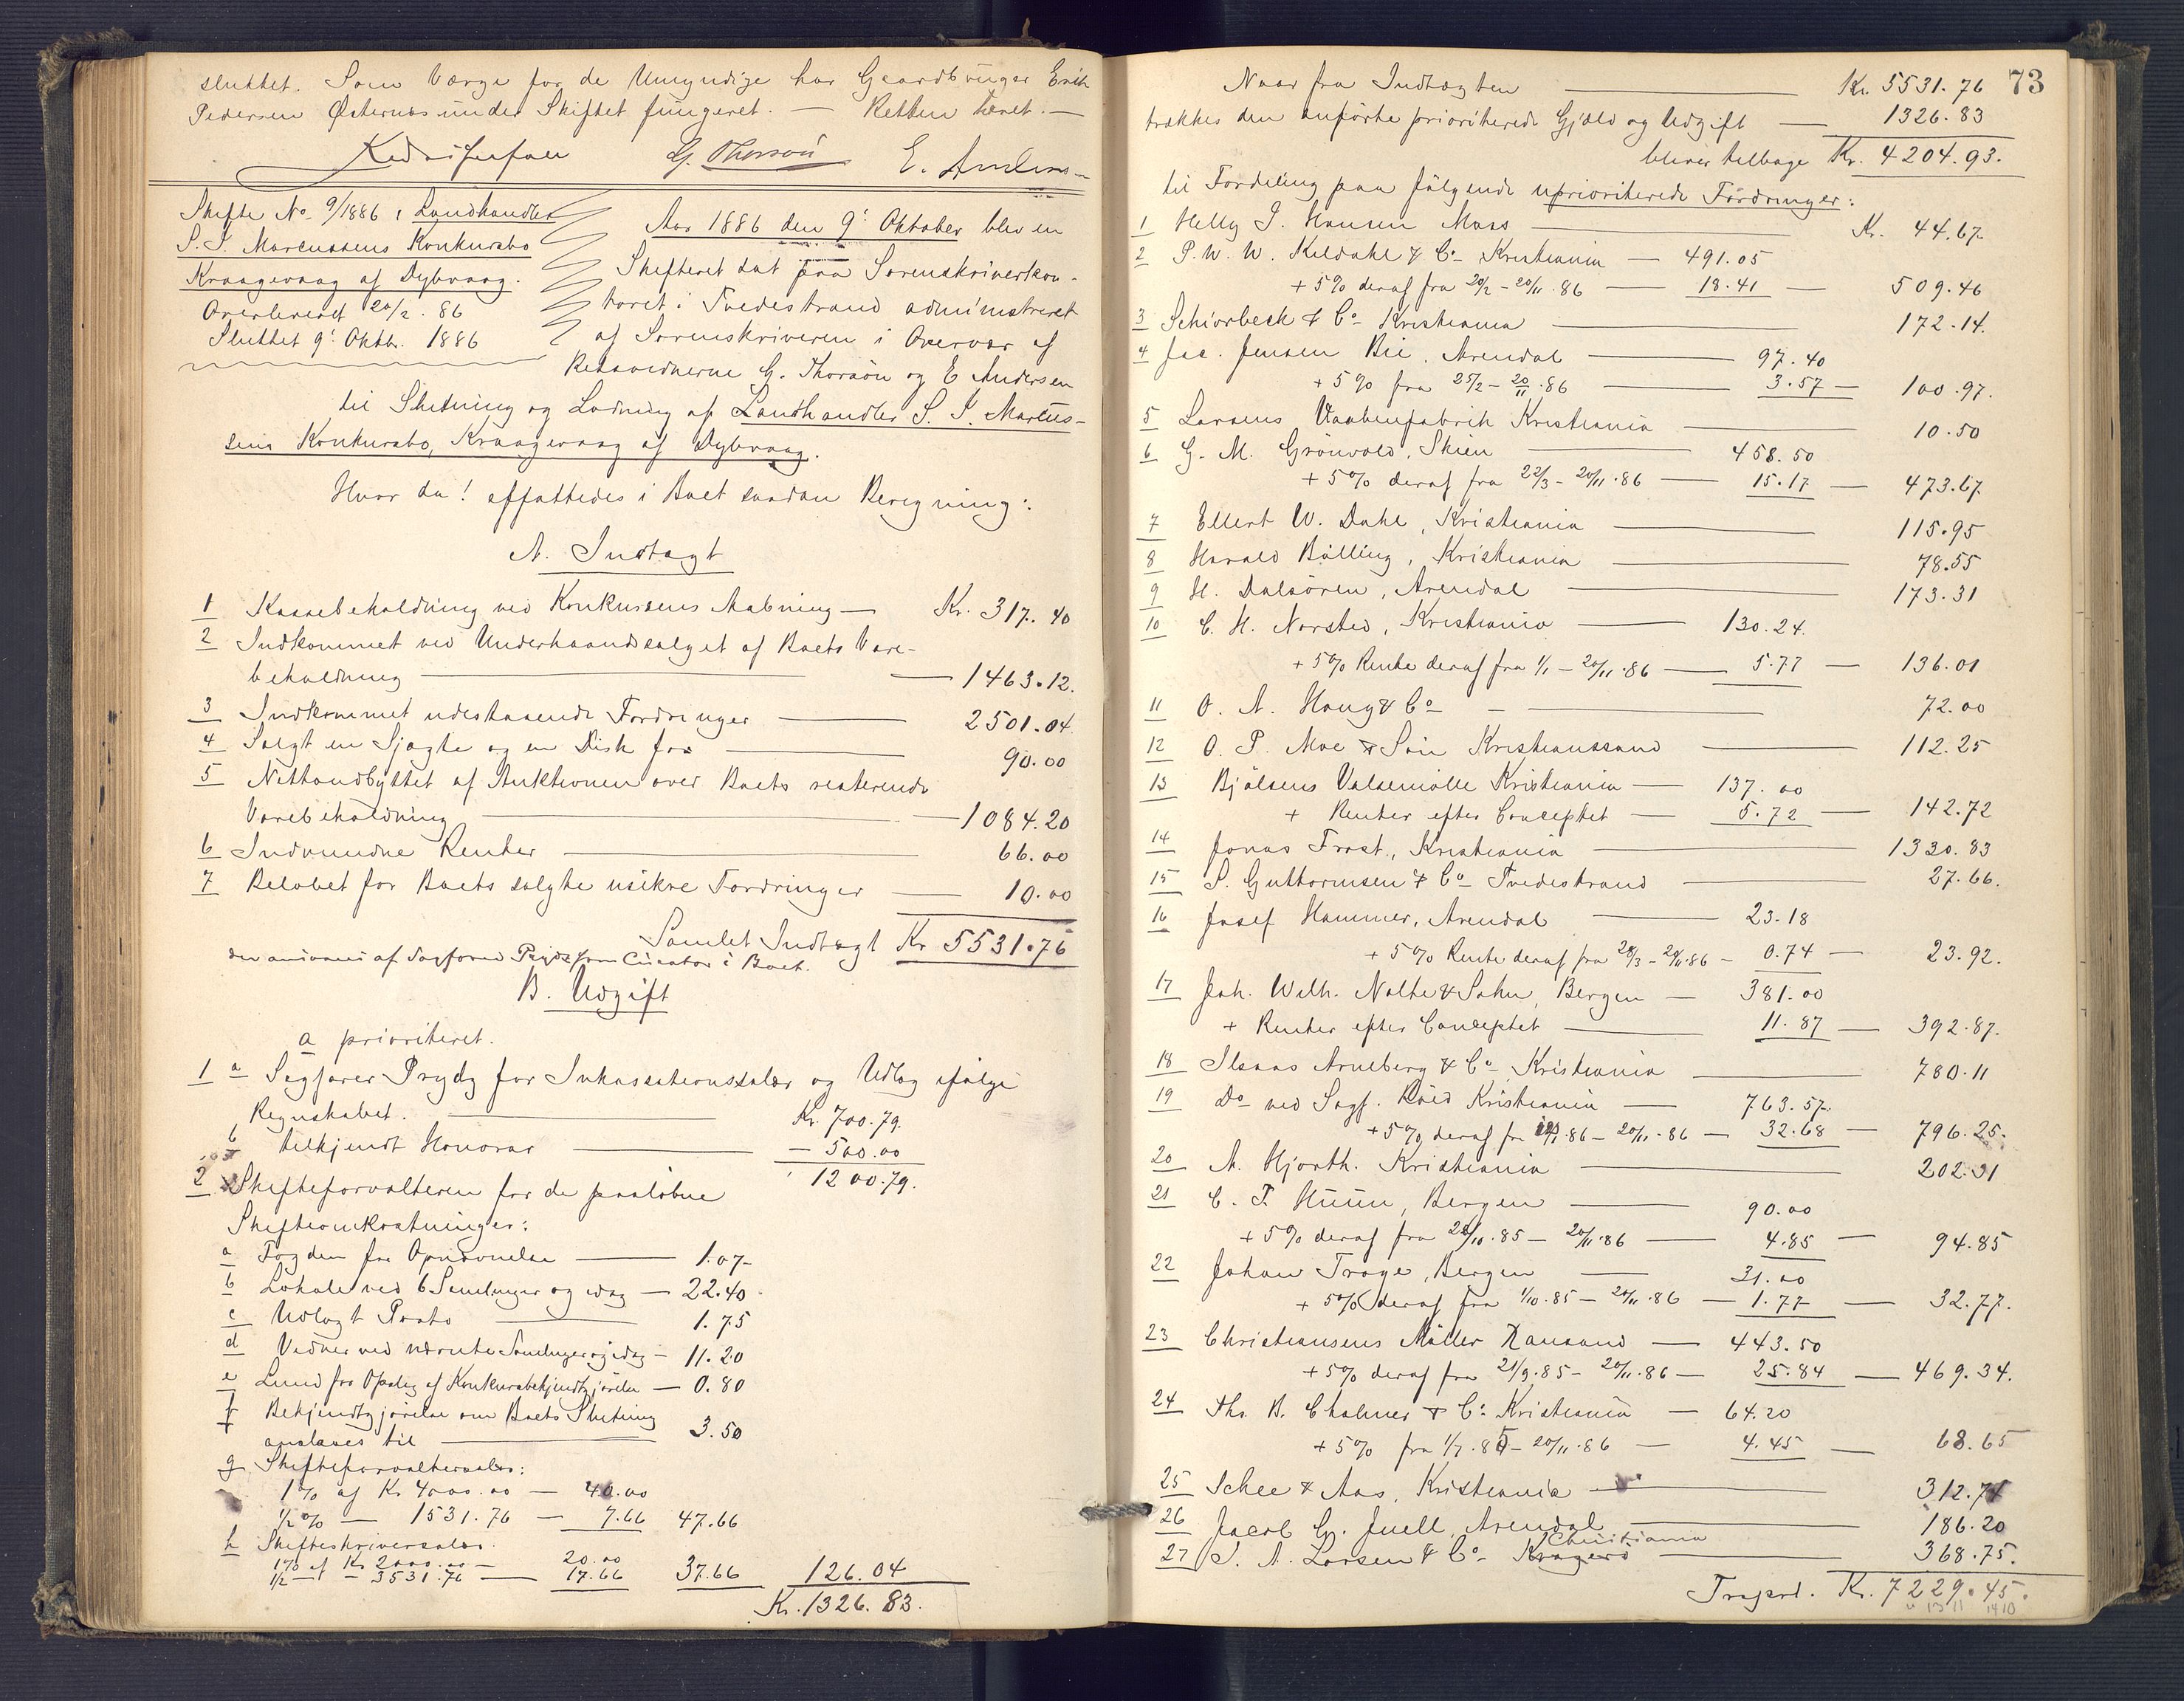 sluttet. Som Værge for de Umyndige har Gaardbruger Erik
Pedersen Østernæs under Skiftet fungeret. — Retten hævet. —
G. Thorsön E. Andersen
Skifte No 9/1886 i Landhandler
S. J. Marcussens Konkursbo
Kraagevaag af Dybvaag.
Overleveret 20/2. 86
Sluttet 9' Oktbr. 1886
Aar 1886 den 9' Oktober blev en
Skifteret sat paa Sorenskriverkon-
toret i Tvedestrand administreret
af Sorenskriveren i Overvær af
Retsvidnerne G. Thorsön og E Andersen
til Slutning og Lodning af Landhandler S. J. Marcus-
sens Konkursbo, Kraagevaag af Dybvaag.
Hvor da! affattedes i Boet saadan Beregning:
A. Indtægt
1 Kassebeholdning ved Konkursens Aabning — Kr. 317. 40
2 Indkommet ved Underhaandssalget af Boets Vare-
beholdning — 1463.12.
3 Indkommet udestaaende Fordringer — 2501.04
4 Solgt en Sjægte og en Disk for — 90.00
5 Nettoudbyttet af Auktionen over Boets resterende
Varebeholdning — 1084.20
6 Indvundne Renter — 66.00
7 Beløbet for Boets solgte usikre Fordringer — 10.00
Samlet Indtægt Kr 5531.76
der anvises af Sagfører Prydz som Curator i Boet.
B. Udgift
a prioriteret.
1 a Sagfører Prydz for Inkassationssalær og Udlæg ifølge
Regnskabet. — Kr. 700.79.
b tilkjendt Honorar — 500.00
1200.79.
2 Skifteforvalteren for de paaløbne
Skifteomkostninger:
a Fogden for Opnævnelse — 1.07
b Lokale ved 6 Samlinger og idag — 22.40
c Udlagt Porto — 1.75
d Vidner ved nævnte Samlinger og idag — 11.20
e Lund for Opslag af Konkursbekjendtgjørelse — 0.80
f Bekjendtgjørelse om Boets Slutning
anslaaes til — 3.50
g Skifteforvaltersalær:
1% af Kr 4000.00 — 40.00
1/2% — 1531.76 — 7.66 47.66
h Skifteskriversalær.
1% af Kr 2000.00 — 20.00
1/2 — - 3531.76 — 17.66 37.66 126.04
Kr. 1326.83.
73
Naar fra Indtægten — Kr. 5531.76
trækkes den anførte prioriterede Gjæld og Udgift — 1326.83
bliver tilbage Kr. 4204.93.
til Fordeling paa følgende uprioriterede Fordringer:
1 Helly J. Hansen Moss — Kr. 44.67
2 P. W. W. Kildahl & Co Kristiania — 491.05
+ 5% deraf fra 20/2 - 20/11.86 — 18.41 — 509.46
3 Schiørbeck & Co Kristiania — 172.14.
4 Jac. Jensen Bie, Arendal — 97.40
+ 5% fra 25/2 - 20/11.86 — 3.57 — 100.97.
5 Larsens Vaabenfabrik Kristiania — 10.50
6 G. M. Grönvold, Skien — 458.50
+ 5% deraf fra 22/3 - 20/11.86 — 15.17 — 473.67
7 Ellert W. Dahl, Kristiania — 115.95
8 Harald Bölling, Kristiania — 78.55
9 H. Dalsören, Arendal — 173.31
10 C. H. Norsted, Kristiania — 130.24.
+ 5% Rente deraf fra 1/1 - 20/11.86 — 5.77 — 136.01
11 O. A. Haug & Co — 72.00
12 O. P. Moe & Sön Kristianssand — 112.25
13 Bjölsens Valsemölle Kristiania — 137.00
+ Renter efter Conceptet — 5.72 — 142.72
14 Jonas Frost., Kristiania — 1330.83
15 S. Guttormsen & Co Tvedestrand — 27.66.
16 Josef Hammer, Arendal — 23.18
+ 5% Rente deraf fra 28/3 - 20/11.86 — 0.74 — 23.92.
17 Joh. Wilh. Nolte & Sohn, Bergen — 381.00
+ Renter efter Conceptet — 11.87 — 392.87.
18 Isaas Arneberg & Co Kristiania — 780.11
19 Do ved Sagf. Kristiania — 763.57.
+ 5% deraf fra .86 - 20/11.86 — 32.68 — 796.25.
20 A. Hjorth. Kristiania — 202.31
21 C. T. Huun, Bergen — 90.00
+ 5% deraf fra 28/10.85 - 20/11.86 — 4.85 — 94.85
22 Johan Trage, Bergen — 31.00
+ 5% deraf fra 1/10.85 - 20/11.86 — 1.77 — 32.77.
23 Christiansens Möller — 443.50
+ 5% deraf fra 21/9.85 - 20/11.86 — 25.84 — 469.34.
24 Ths. B. Chalmer & Co Kristiania — 64.20
+ 5% fra 1/7.85 - 20/11.86 — 4.45 — 68.65
25 Schee & Aas, Kristiania — 312.71
26 Jacob G. Juell, Arendal — 186.20
Christiania
27 J. A. Larsen & Co Kragerö — 368.75.
Trspt. Kr. 7229.45.